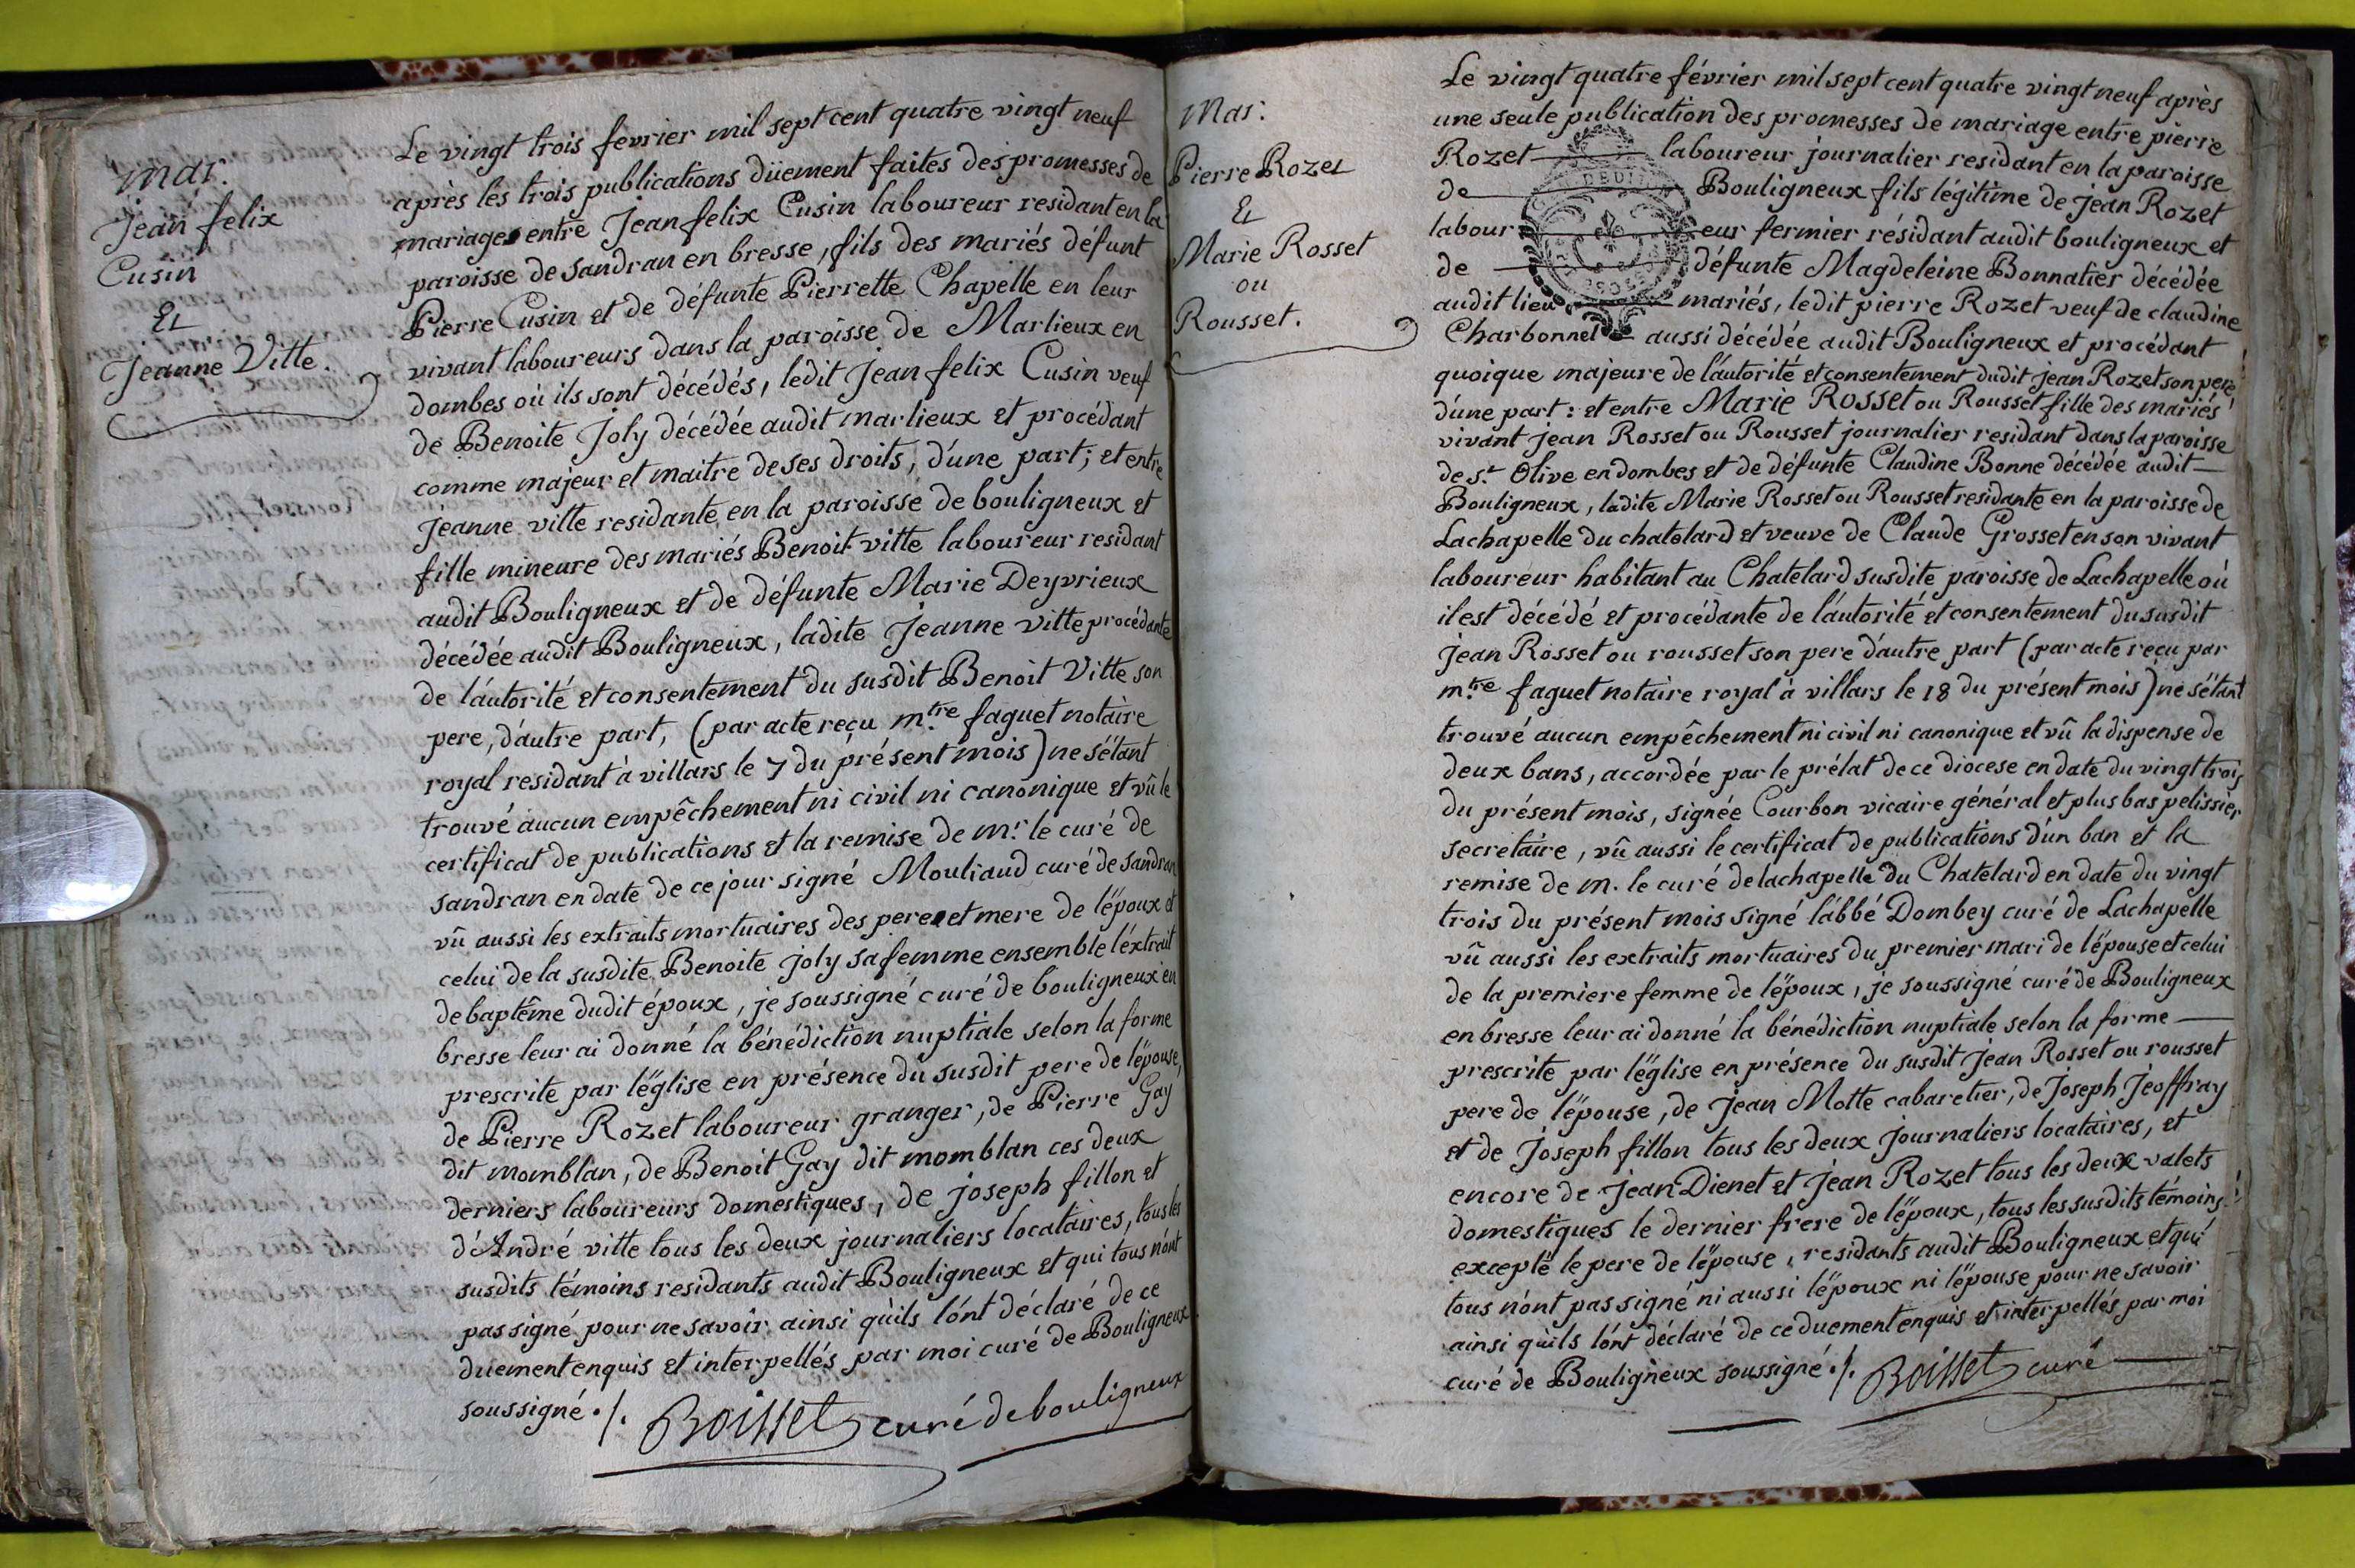 mar.
Jean felix
Cusin
Et
Jeanne Vitte.
Le vingt trois fevrier mil sept cent quatre vingt neuf
après les trois publications düement faites des promesses de
mariages entre Jean felix Cusin laboureur residant en la
paroisse de sandran en bresse, fils des mariés défunt
Pierre Cusin et de défunte Pierrette Chapelle en leur
vivant laboureurs dans la paroisse de Marlieux en
dombes où ils sont décédés, ledit Jean felix Cusin veuf
de Benoite Joly décédée audit marlieux et procédant
comme majeur et maitre de ses droits, d'une part; et entre
jeanne vitte residante en la paroisse de bouligneux et
fille mineure des mariés Benoit vitte laboureur residant
audit Bouligneux et de défunte Marie Deyvrieux
décédée audit Bouligneux, ladite Jeanne vitte procédante
de l'autorité et consentement du susdit Benoit Vitte son
pere, d'autre part, (par acte reçu m.tre faguet notaire
royal residant à villars le 7 du présent mois) ne s'étant
trouvé aucun empêchement ni civil ni canonique et vû le
certificat de publications et la remise de mr. le curé de
sandran en date de ce jour signé Mouliaud curé de sandran
vû aussi les extraits mortuaires des pere et mere de l'époux et
celui de la susdite Benoite joly sa femme ensemble l'extrait
de baptême dudit époux, je soussigné curé de bouligneux en
bresse leur ai donné la bénédiction nuptiale selon la forme
prescrite par l'église en présence du susdit pere de l'épouse,
de Pierre Rozet laboureur granger, de Pierre Gay
dit momblan, de Benoit Gay dit momblan ces deux
derniers laboureurs domestiques, de joseph fillon et
d'André vitte tous les deux journaliers locataires, tous les
susdits témoins residants audit Bouligneux et qui tous n'ont
pas signé pour ne savoir ainsi qu'ils l'ont déclaré de ce
duement enquis et interpellés par moi curé de Bouligneux
soussigné ./. Boisset curé de bouligneux
Mar.
Pierre Rozet
Et
Marie Rosset
ou
Rousset.
Le vingt quatre février mil sept cent quatre vingt neuf après
une seule publication des promesses de mariage entre pierre
Rozet laboureur journalier residant en la paroisse
de Bouligneux fils légitime de jean Rozet
laboureur fermier résidant audit bouligneux et
de défunte Magdeleine Bonnatier décédée
audit lieu mariés, ledit pierre Rozet veuf de claudine
Charbonnel aussi décédée audit Bouligneux et procédant
quoique majeure de l'autorité et consentement dudit jean Rozet son pere
d'une part: et entre Marie Rosset ou Rousset fille des mariés
vivant jean Rosset ou Rousset journalier residant dans la paroisse
de St. Olive en dombes et de défunte Claudine Bonne décédée audit
Bouligneux, ladite Marie Rosset ou Rousset residante en la paroisse de
Lachapelle du chatelard et veuve de Claude Grosset en son vivant
laboureur habitant au Chatelard susdite paroisse de Lachapelle où
il est décédé et procédante de l'autorité et consentement du susdit
jean Rosset ou rousset son pere d'autre part (par acte reçu par
m.tre faguet notaire royal à villars le 18 du présent mois) ne s'étant
trouvé aucun empêchement ni civil ni canonique et vû la dispense de
deux bans, accordée par le prélat de ce diocese en date du vingt trois
du présent mois, signée Courbon vicaire général et plus bas pelissier
secretaire, vû aussi le certificat de publications d'un ban et la
remise de m. le curé de lachapelle du Chatelard en date du vingt
trois du présent mois signé l'abbé Dombey curé de Lachapelle
vû aussi les extraits mortuaires du premier mari de l'épouse et celui
de la premiere femme de l'époux, je soussigné curé de Bouligneux
en bresse leur ai donné la bénédiction nuptiale selon la forme
prescrite par l'église en présence du susdit jean Rosset ou rousset
pere de l'épouse, de jean Motte cabaretier, de Joseph Jeoffray
et de Joseph fillon tous les deux journaliers locataires, et
encore de jean Dienet et jean Rozet tous les deux valets
domestiques le dernier frere de l'époux, tous les susdits témoins
excepté le pere de l'épouse, residants audit Bouligneux et qui
tous n'ont pas signé ni aussi l'époux ni l'épouse pour ne savoir
ainsi qu'ils l'ont déclaré de ce duement enquis et interpellés par moi
curé de Bouligneux soussigné ./. Boisset curé